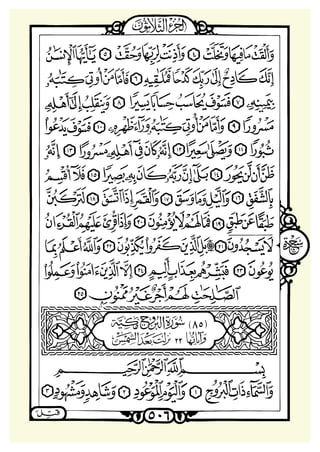 الجزء الثلاثون
وَأَلْقَتْ مَا فِيهَا وَتَخَلَّتْ ۝٤ وَأَذِنَتْ لِرَبِّهَا وَحُقَّتْ ۝٥ يَـٰٓأَيُّهَا ٱلْإِنسَـٰنُ
إِنَّكَ كَادِحٌ إِلَىٰ رَبِّكَ كَدْحًا فَمُلَـٰقِيهِ ۝٦ فَأَمَّا مَنْ أُوتِىَ كِتَـٰبَهُۥ
بِيَمِينِهِۦ ۝٧ فَسَوْفَ يُحَاسَبُ حِسَابًا يَسِيرًا ۝٨ وَيَنقَلِبُ إِلَىٰٓ أَهْلِهِۦ
مَسْرُورًا ۝٩ وَأَمَّا مَنْ أُوتِىَ كِتَـٰبَهُۥ وَرَآءَ ظَهْرِهِۦ ۝١٠ فَسَوْفَ يَدْعُوا۟
ثُبُورًا ۝١١ وَيَصْلَىٰ سَعِيرًا ۝١٢ إِنَّهُۥ كَانَ فِىٓ أَهْلِهِۦ مَسْرُورًا ۝١٣ إِنَّهُۥ
ظَنَّ أَن لَّن يَحُورَ ۝١٤ بَلَىٰٓ إِنَّ رَبَّهُۥ كَانَ بِهِۦ بَصِيرًا ۝١٥ فَلَآ أُقْسِمُ
بِٱلشَّفَقِ ۝١٦ وَٱلَّيْلِ وَمَا وَسَقَ ۝١٧ وَٱلْقَمَرِ إِذَا ٱتَّسَقَ ۝١٨ لَتَرْكَبُنَّ
طَبَقًا عَن طَبَقٍ ۝١٩ فَمَا لَهُمْ لَا يُؤْمِنُونَ ۝٢٠ وَإِذَا قُرِئَ عَلَيْهِمُ ٱلْقُرْءَانُ
لَا يَسْجُدُونَ ۝٢١ بَلِ ٱلَّذِينَ كَفَرُوا۟ يُكَذِّبُونَ ۝٢٢ وَٱللَّهُ أَعْلَمُ بِمَا
يُوعُونَ ۝٢٣ فَبَشِّرْهُم بِعَذَابٍ أَلِيمٍ ۝٢٤ إِلَّا ٱلَّذِينَ ءَامَنُوا۟ وَعَمِلُوا۟
ٱلصَّـٰلِحَـٰتِ لَهُمْ أَجْرٌ غَيْرُ مَمْنُونٍۭ ۝٢٥
(٨٥) سُورَةُ الْبُرُوجِ مَكِّيَّة
وَآيَاتُهَا ٢٢ نَزَلَتْ بَعْدَ الشَّمْسِ
بِسْمِ ٱللَّهِ ٱلرَّحْمَـٰنِ ٱلرَّحِيمِ
وَٱلسَّمَآءِ ذَاتِ ٱلْبُرُوجِ ۝١ وَٱلْيَوْمِ ٱلْمَوْعُودِ ۝٢ وَشَاهِدٍ وَمَشْهُودٍ ۝٣
قُتِلَ
٥٠٦